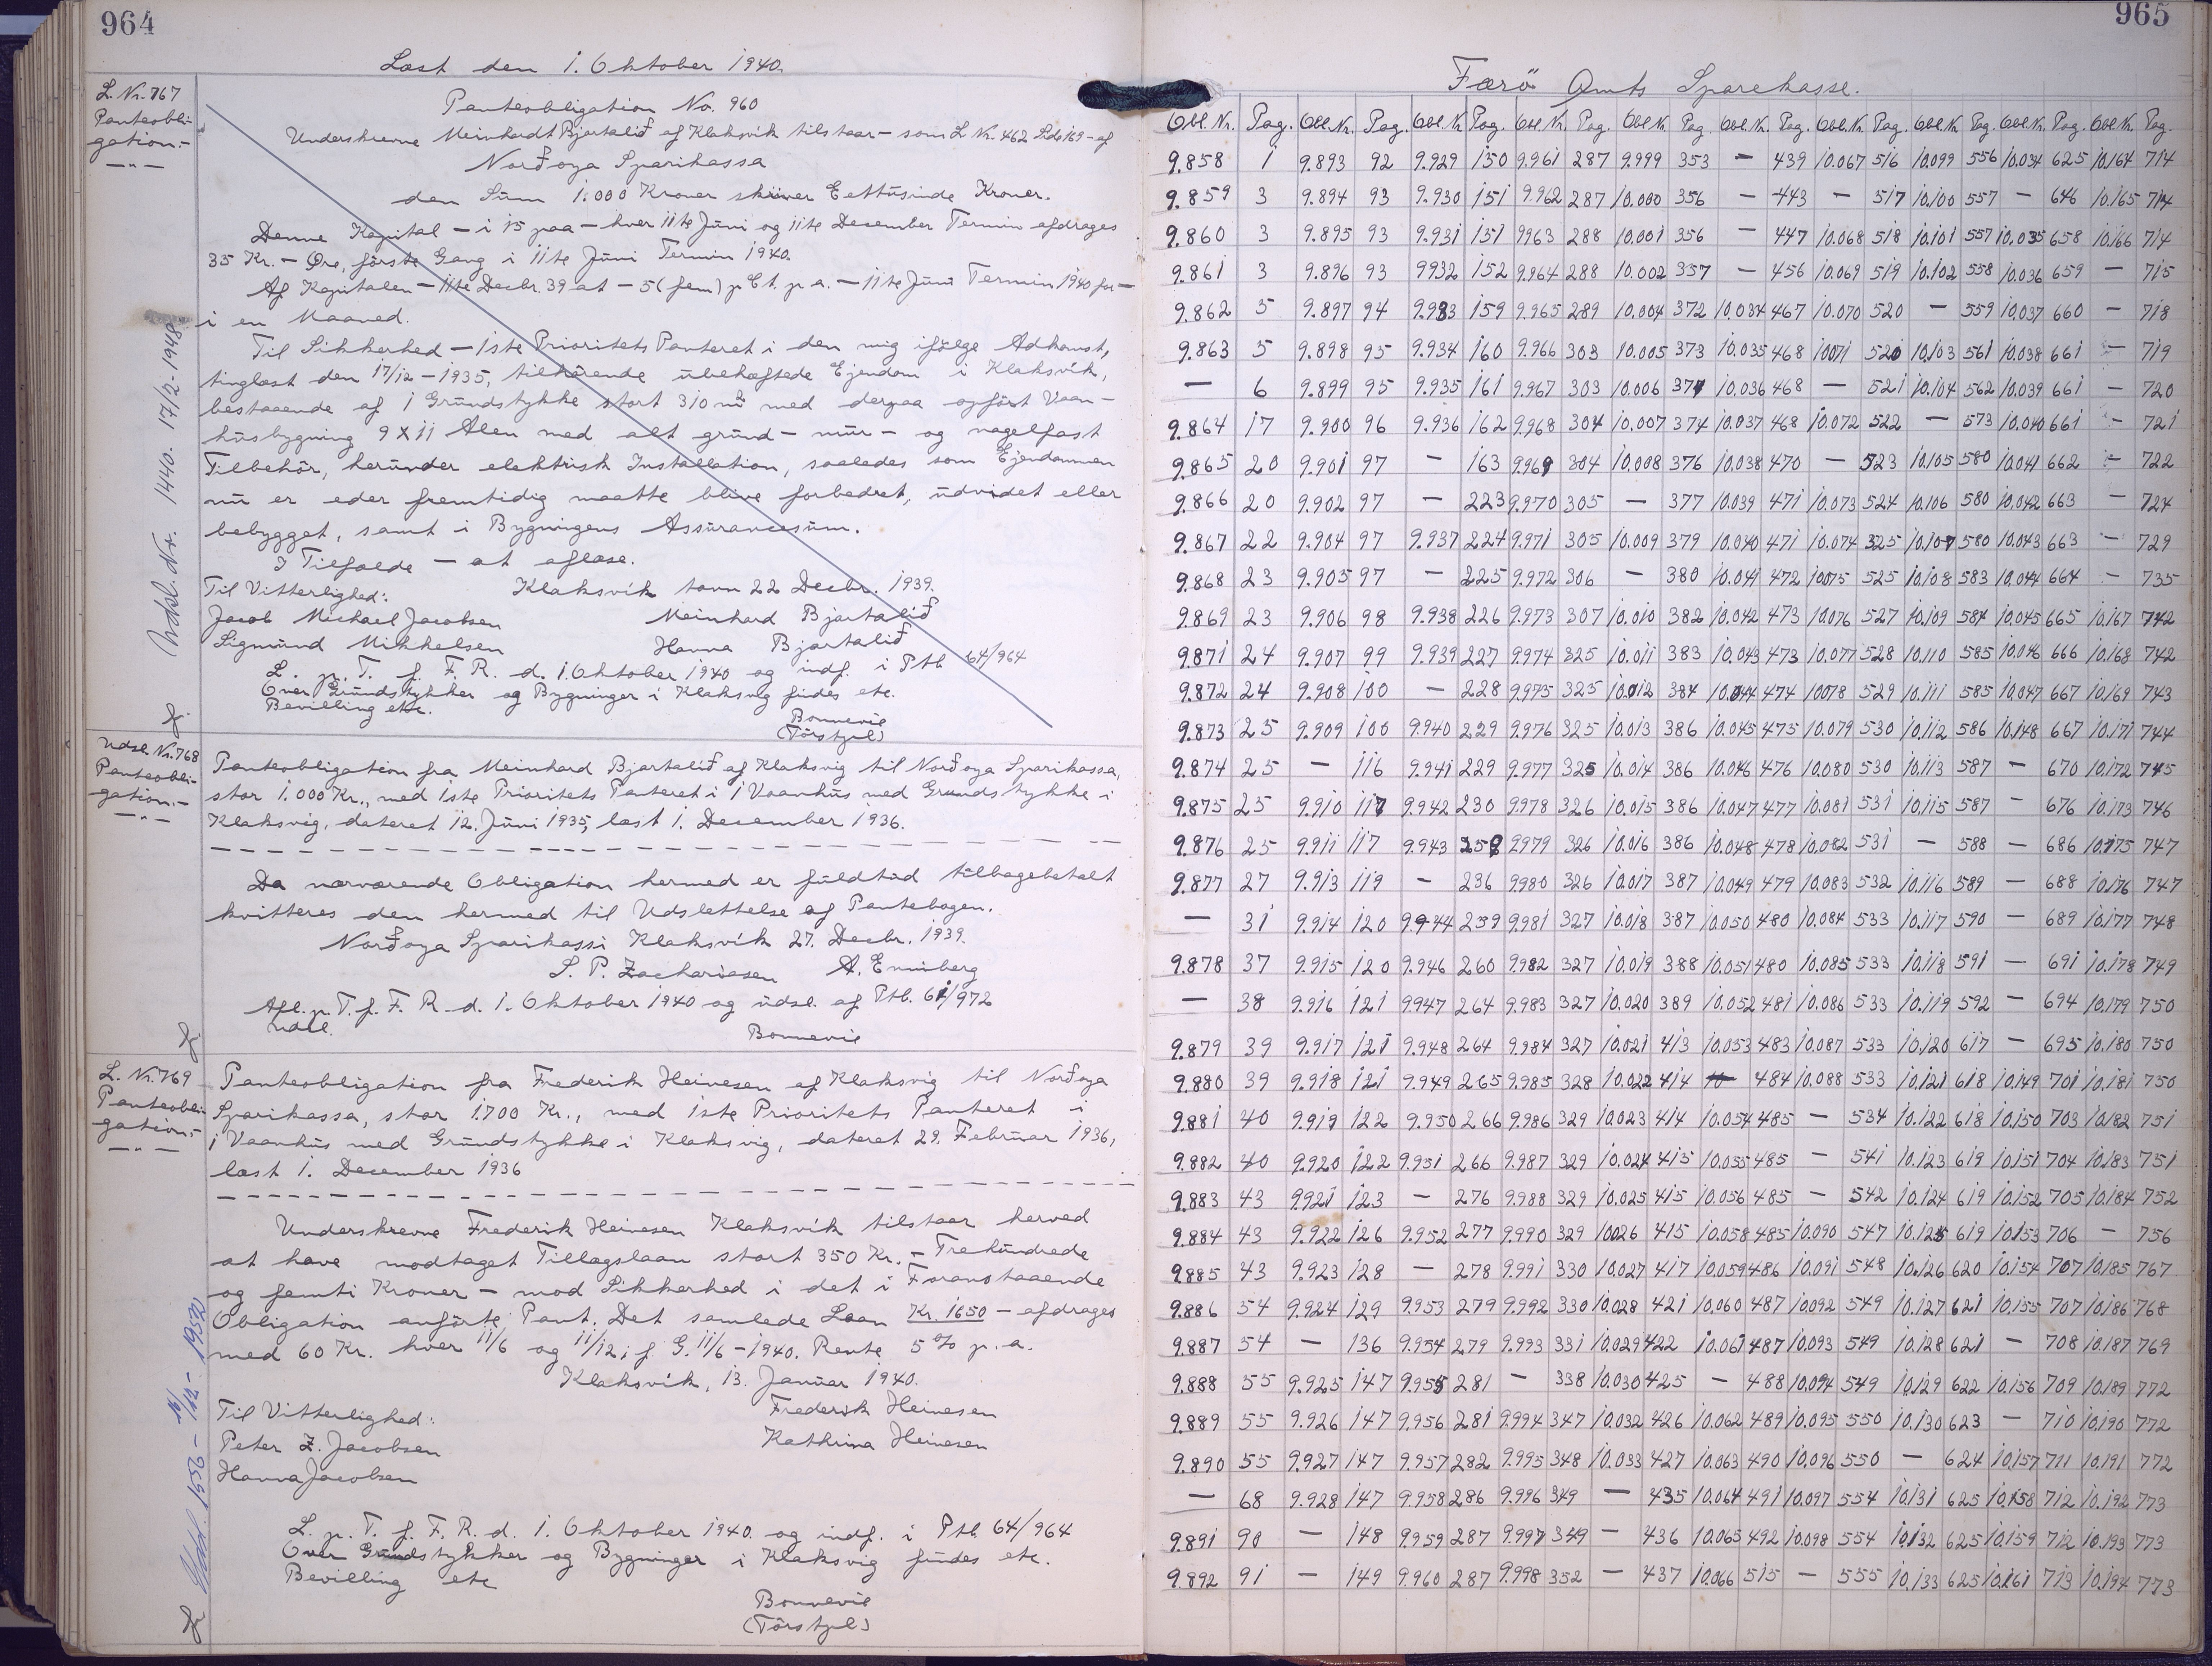 964
Læst den 1. Oktober 1940.
L. Nr. 767
Panteobli-
gation.-
— " —
Panteobligation No. 960
Underskrevne Meinhardt Bjartalið af Klaksvik tilstaar – som L Nr. 462 Side 169 – af
Norðoya Sparikassa
den Sum 1.000 Kroner skriver Eettusinde Kroner.
Denne Kapital – i 15 paa – hver 11te Juni og 11te December Termin afdrages
35 Kr. – Øre, første Gang i 11te Juni Termin 1940.
Af Kapitalen – 11te Decbr. 39 at – 5 (fem) p Ct. p a. – 11te Juni Termin 1940 for –
i en Maaned.
Til Sikkerhed – 1ste Prioritets Panteret i den mig ifølge Adkomst,
tinglæst den 17/12 – 1935, tilhørende ubehæftede Ejendom i Klaksvík,
bestaaende af 1 Grundstykke stort 310 m² med derpaa opført Vaan-
husbygning 9 X 11 Alen med alt grund – mur – og nagelfast
Tilbehør, herunder elektrisk Installation, saaledes som Ejendommen
nu er eder fremtidig maatte blive forbedret, udvidet eller
bebygget, samt i Bygningens Assurancesum.
I Tilfælde – at aflæse.
Til Vitterlighed: Klaksvík tavn 22 Decbr. 1939.
Jacob Michael Jacobsen Meinhard Bjartalið
Sigmund Mikkelsen Hanna Bjartalið
L. p. T. f. F. R. d. 1. Oktober 1940 og indf. i Ptb 64/964
Over Grundstykker og Bygninger i Klaksvig findes etc.
Bevilling etc.
Bonnevie
(Tórstjul)
Udsl. Nr. 1440. 17/2-1948
Udsl. Nr. 768
Panteobli-
gation.-
— " —
Panteobligation fra Meinhard Bjartalið af Klaksvig til Norðoya Sparikassa,
stor 1.000 Kr., med 1ste Prioritets Panteret i 1 Vaanhus med Grundstykke i
Klaksvig, dateret 12. Juni 1935, læst 1. December 1936.
Da nærværende Obligation hermed er fuldtud tilbagebetalt
kvitteres den hermed til Udslettelse af Pantebogen.
Norðoya Sparikassi Klaksvík 27. Decbr. 1939.
S. P. Zachariasen A. Enniberg
Afl. p. T. f. F. R. d. 1. Oktober 1940 og udsl. af Ptb. 61/972
Bonnevie
L. Nr. 769
Panteobli-
gation.-
— " —
Panteobligation fra Frederik Heinesen af Klaksvig til Norðoya
Sparikassa, stor 1700 Kr., med 1ste Prioritets Panteret i
1 Vaanhus med Grundstykke i Klaksvig, dateret 29. Februar 1936,
læst 1. December 1936
Underskrevne Frederik Heinesen Klaksvík tilstaar herved
at have modtaget Tillægslaan stort 350 Kr. – Trehundrede
og femti Kroner – mod Sikkerhed i det i Foranstaaende
Obligation anførte Pant. Det samlede Laan Kr. 1650 – afdrages
med 60 Kr. hver 11/6 og 11/12, f. G. 11/6 – 1940. Rente 5 % p. a.
Klaksvík, 13. Januar 1940.
Til Vitterlighed: Frederik Heinesen
Peter Z. Jacobsen Kathrina Heinesen
Hanna Jacobsen
L. p. T. f. F. R. d. 1. Oktober 1940. og indf. i Ptb 64/964
Over Grundstykker og Bygninger i Klaksvig findes etc.
Bevilling etc
Bonnevie
(Tórstjul)
965
Færö Amts Sparekasse.
Obl. Nr. Pag. Obl. Nr. Pag. Obl. Nr. Pag. Obl. Nr. Pag. Obl. Nr. Pag. Obl. Nr. Pag. Obl. Nr. Pag. Obl. Nr. Pag. Obl. Nr. Pag. Obl. Nr. Pag.
9.858 1 9.893 92 9.929 150 9.961 287 9.999 353 — 439 10.067 516 10.099 556 10.034 625 10.164 714
9.859 3 9.894 93 9.930 151 9.962 287 10.000 356 — 443 — 517 10.100 557 — 646 10.165 714
9.860 3 9.895 93 9.931 151 9963 288 10.001 356 — 447 10.068 518 10.101 557 10.035 658 10.166 714
9.861 3 9.896 93 9932 152 9.964 288 10.002 357 — 456 10.069 519 10.102 558 10.036 659 — 715
9.862 5 9.897 94 9.933 159 9.965 289 10.004 372 10.034 467 10.070 520 — 559 10.037 660 — 718
9.863 5 9.898 95 9.934 160 9.966 303 10.005 373 10.035 468 10071 520 10.103 561 10.038 661 — 719
— 6 9.899 95 9.935 161 9.967 303 10.006 374 10.036 468 — 521 10.104 562 10.039 661 — 720
9.864 17 9.900 96 9.936 162 9.968 304 10.007 374 10.037 468 10.072 522 — 573 10.040 661 — 721
9.865 20 9.901 97 — 163 9.969 304 10.008 376 10.038 470 — 523 10.105 580 10.041 662 — 722
9.866 20 9.902 97 — 223 9.970 305 — 377 10.039 471 10.073 524 10.106 580 10.042 663 — 724
9.867 22 9.904 97 9.937 224 9.971 305 10.009 379 10.040 471 10.074 325 10.107 580 10.043 663 — 729
9.868 23 9.905 97 — 225 9.972 306 — 380 10.041 472 10075 525 10.108 583 10.044 664 — 735
9.869 23 9.906 98 9.938 226 9.973 307 10.010 382 10.042 473 10.076 527 10.109 584 10.045 665 10.167 742
9.871 24 9.907 99 9.939 227 9.974 325 10.011 383 10.043 473 10.077 528 10.110 585 10.046 666 10.168 742
9.872 24 9.908 100 — 228 9.975 325 10.012 384 10.044 474 10078 529 10.111 585 10.047 667 10.169 743
9.873 25 9.909 100 9.940 229 9.976 325 10.013 386 10.045 475 10.079 530 10.112 586 10.148 667 10.171 744
9.874 25 — 116 9.941 229 9.977 325 10.014 386 10.046 476 10.080 530 10.113 587 — 670 10.172 745
9.875 25 9.910 117 9.942 230 9978 326 10.015 386 10.047 477 10.081 531 10.115 587 — 676 10.173 746
9.876 25 9.911 117 9.943 258 9979 326 10.016 386 10.048 478 10.082 531 — 588 — 686 10.175 747
9.877 27 9.913 119 — 236 9980 326 10.017 387 10.049 479 10.083 532 10.116 589 — 688 10.176 747
— 31 9.914 120 9.944 239 9.981 327 10.018 387 10.050 480 10.084 533 10.117 590 — 689 10.177 748
9.878 37 9.915 120 9.946 260 9.982 327 10.019 388 10.051 480 10.085 533 10.118 591 — 691 10.178 749
— 38 9.916 121 9947 264 9.983 327 10.020 389 10.052 481 10.086 533 10.119 592 — 694 10.179 750
9.879 39 9.917 121 9.948 264 9.984 327 10.021 413 10.053 483 10.087 533 10.120 617 — 695 10.180 750
9.880 39 9.918 121 9.949 265 9.985 328 10.022 414 10 484 10.088 533 10.121 618 10.149 701 10.181 750
9.881 40 9.919 122 9.950 266 9.986 329 10.023 414 10.054 485 — 534 10.122 618 10.150 703 10.182 751
9.882 40 9.920 122 9.951 266 9.987 329 10.024 415 10.055 485 — 541 10.123 619 10.151 704 10.183 751
9.883 43 9.921 123 — 276 9.988 329 10.025 415 10.056 485 — 542 10.124 619 10.152 705 10.184 752
9.884 43 9.922 126 9.952 277 9.990 329 10026 415 10.058 485 10.090 547 10.125 619 10.153 706 — 756
9.885 43 9.923 128 — 278 9.991 330 10.027 417 10.059 486 10.091 548 10.126 620 10.154 707 10.185 767
9.886 54 9.924 129 9.953 279 9.992 330 10.028 421 10.060 487 10.092 549 10.127 621 10.155 707 10.186 768
9.887 54 — 136 9.954 279 9.993 331 10.029 422 10.061 487 10.093 549 10.128 621 — 708 10.187 769
9.888 55 9.925 147 9.955 281 — 338 10.030 425 — 488 10.094 549 10.129 622 10.156 709 10.189 772
9.889 55 9.926 147 9.956 281 9.994 347 10.032 426 10.062 489 10.095 550 10.130 623 — 710 10.190 772
9.890 55 9.927 147 9.957 282 9.995 348 10.033 427 10.063 490 10.096 550 — 624 10.157 711 10.191 772
— 68 9.928 147 9.958 286 9.996 349 — 435 10.064 491 10.097 554 10.131 625 10.158 712 10.192 773
9.891 90 — 148 9.959 287 9.997 349 — 436 10.065 492 10.098 554 10.132 625 10.159 712 10.193 773
9.892 91 — 149 9.960 287 9.998 352 — 437 10.066 515 — 555 10.133 625 10.161 713 10.194 773